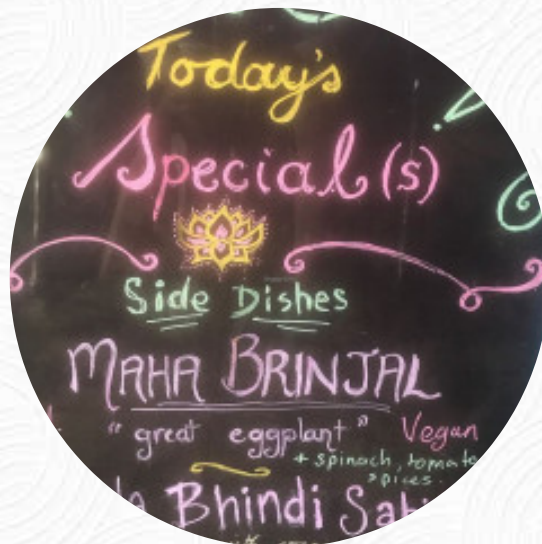 Today's
Special(s)
Side Dishes
MAHA BRINJAL
"great eggplant" Vegan
+ spinach, tomato
spices.
Bhindi